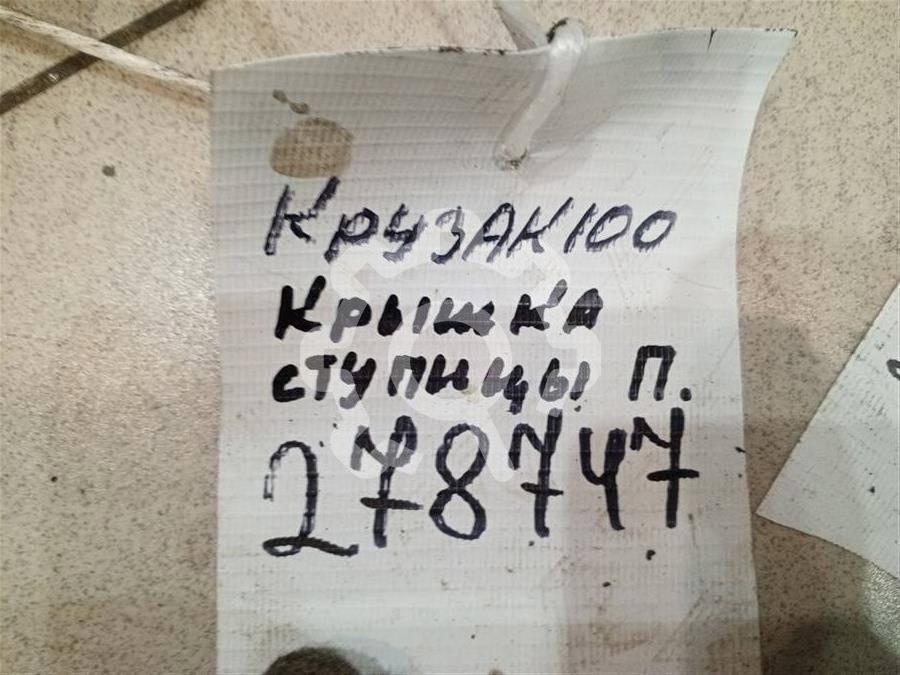 КрузАК 100
Крышка
ступицы П.
278747